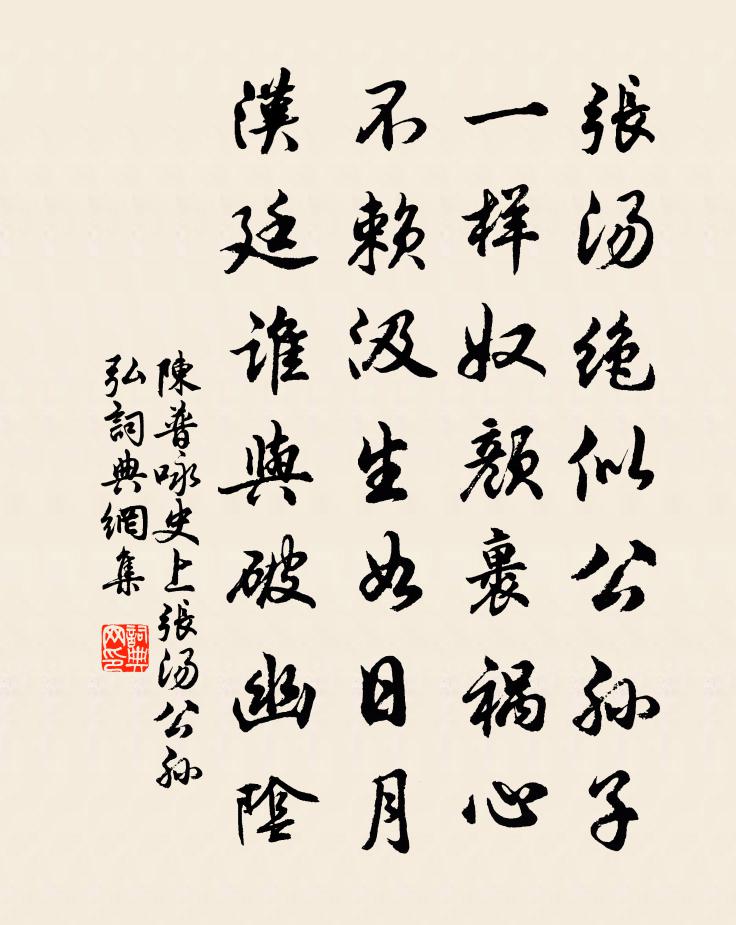 張湯絶似公孙子
一样奴顔裹禍心
不赖汲生如日月
漢廷誰與破幽陰
陳普咏史上張湯公孙
弘詞典網集
詞典
网印